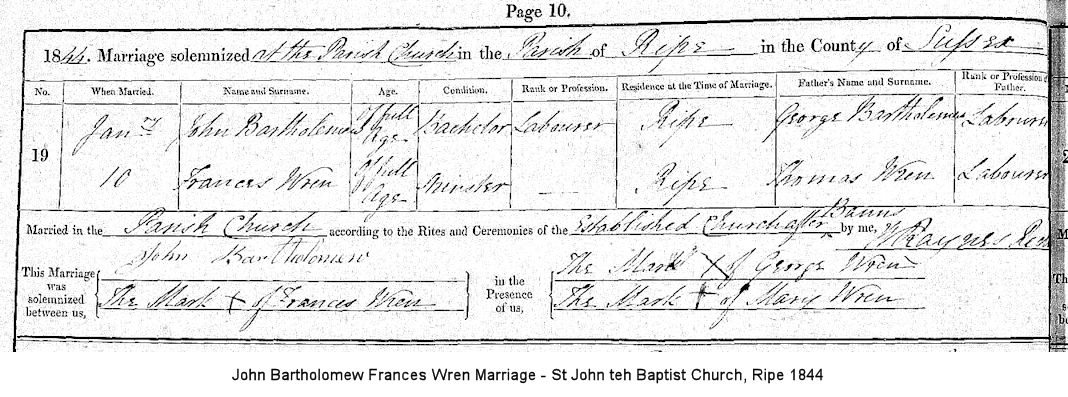 Page 10.
1844. Marriage solemnized at the Parish Church in the Parish of Ripe in the County of Sussex
No. When Married. Name and Surname. Age. Condition. Rank or Profession. Residence at the Time of Marriage. Father's Name and Surname. Rank or Profession of Father.
19 Jany John Bartholomew Of full Age Bachelor Labourer Ripe George Bartholomew Labourer
10 Frances Wren Of full Age Minister — Ripe Thomas Wren Labourer
Married in the Parish Church according to the Rites and Ceremonies of the Established Church after Banns by me, Raynes
This Marriage was solemnized between us, John Bartholomew
The Mark X of Frances Wren
in the Presence of us, The Mark X of George Wren
The Mark + of Mary Wren
John Bartholomew Frances Wren Marriage - St John teh Baptist Church, Ripe 1844